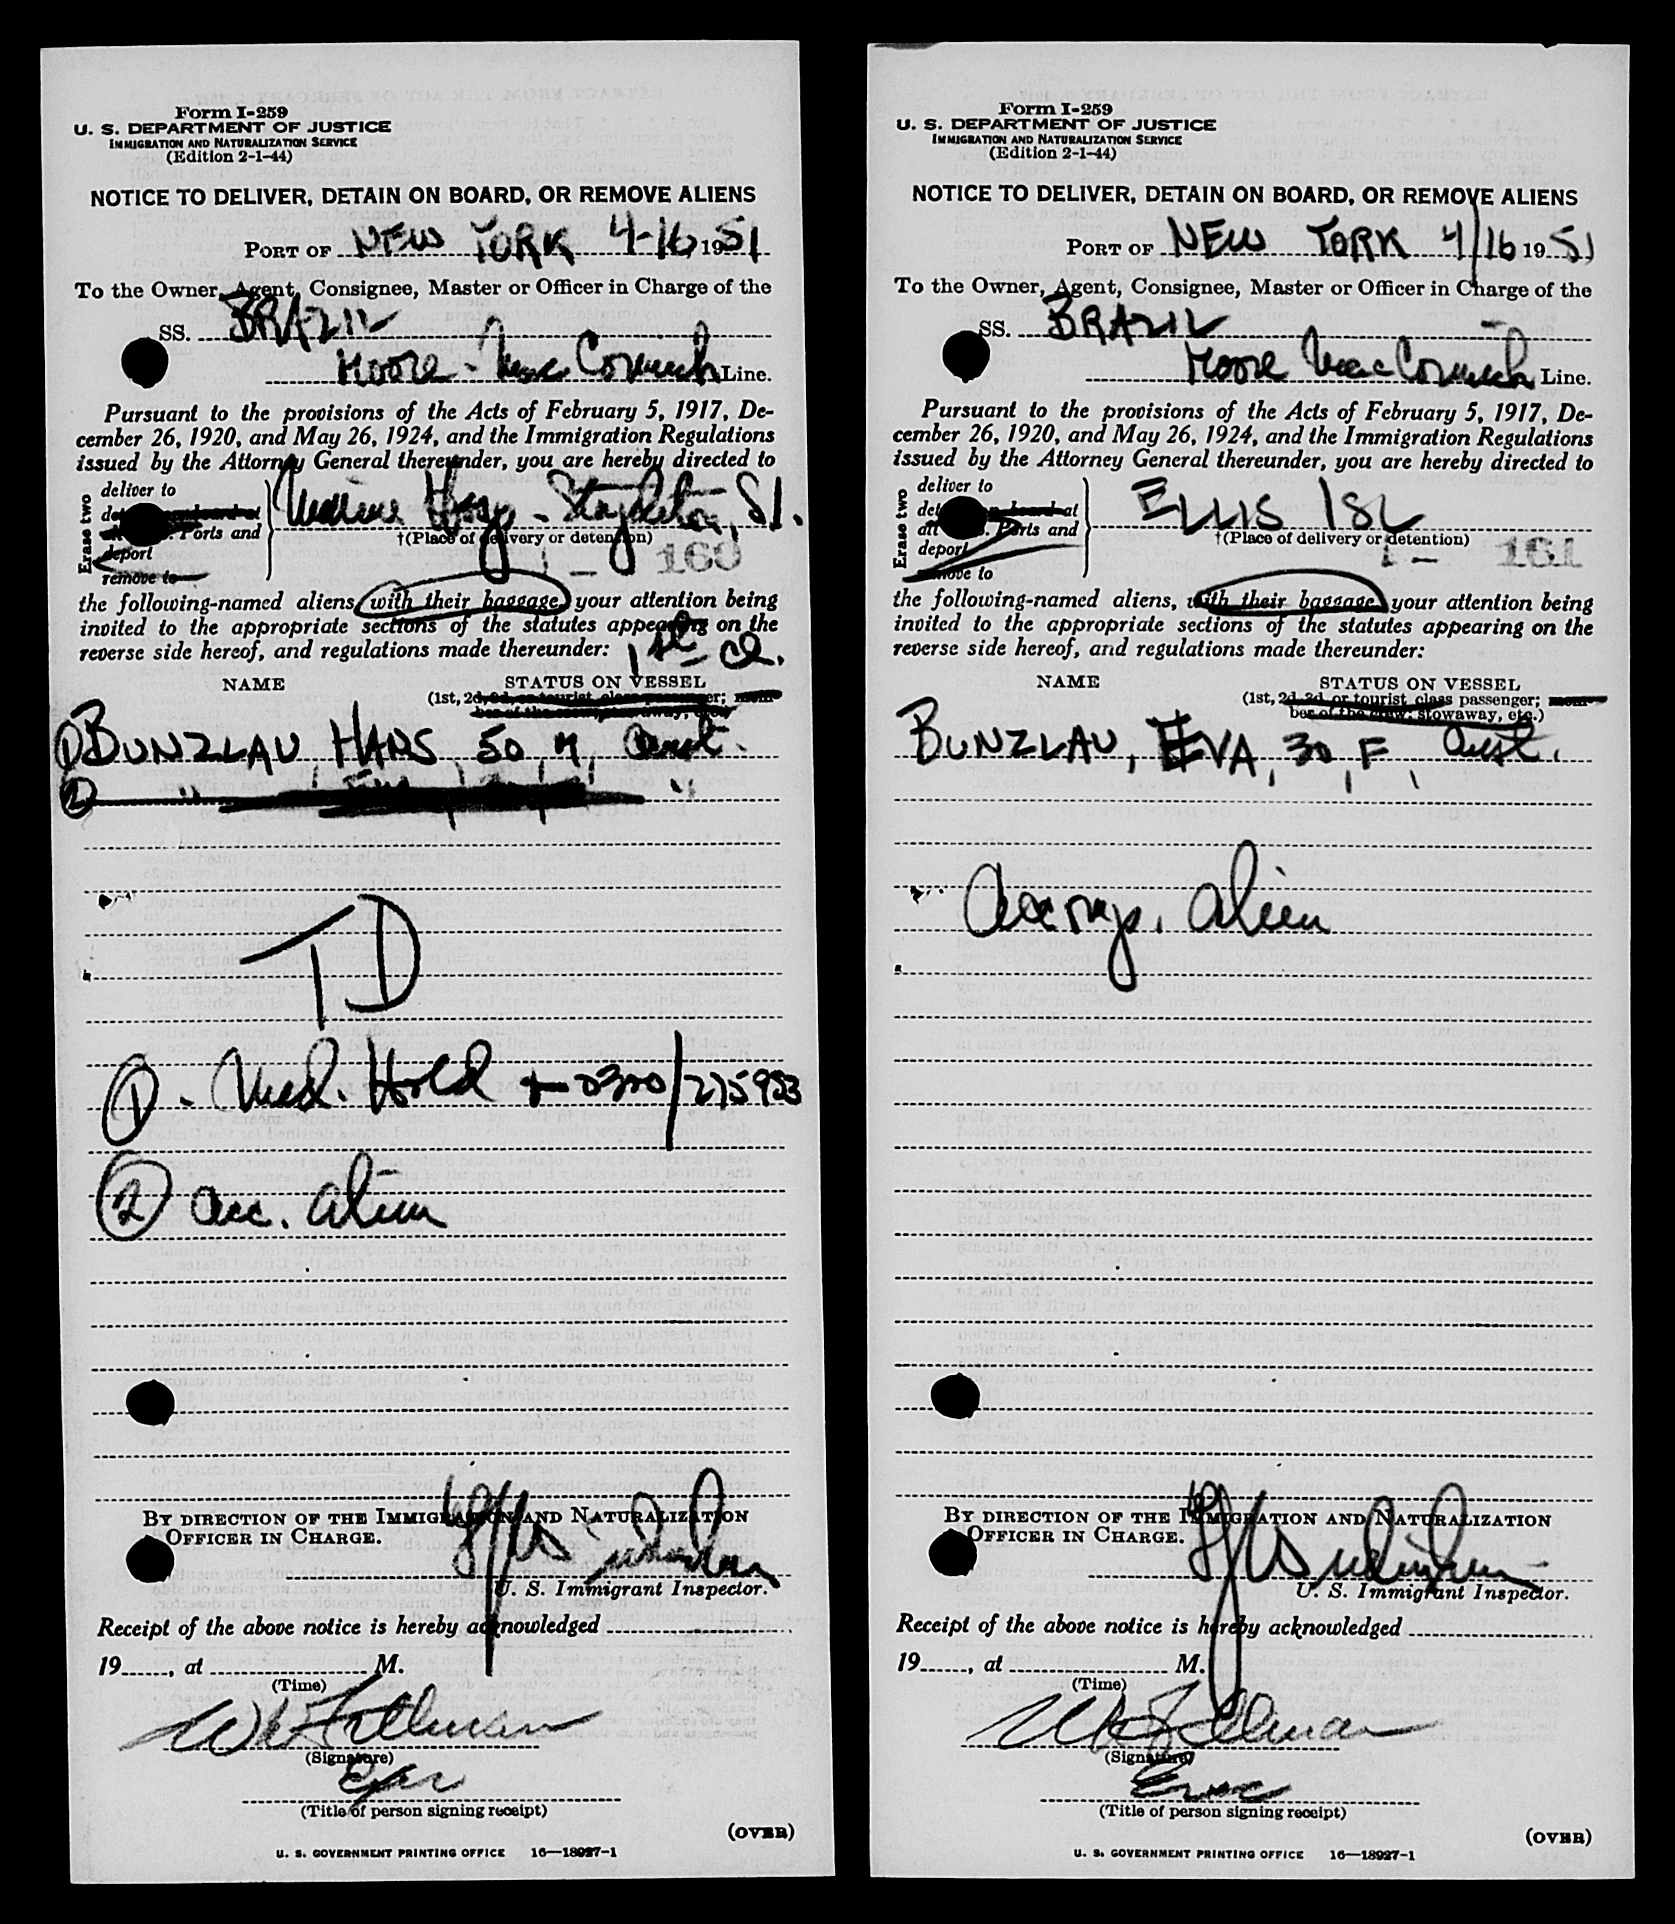 Form I-259
U. S. DEPARTMENT OF JUSTICE
IMMIGRATION AND NATURALIZATION SERVICE
(Edition 2-1-44)
NOTICE TO DELIVER, DETAIN ON BOARD, OR REMOVE ALIENS
PORT OF NEW YORK 4-16, 1951
To the Owner, Agent, Consignee, Master or Officer in Charge of the
SS. BRAZIL
Moore-MacCormick Line.
Pursuant to the provisions of the Acts of February 5, 1917, De-
cember 26, 1920, and May 26, 1924, and the Immigration Regulations
issued by the Attorney General thereunder, you are hereby directed to
Erase two
deliver to
Ports and
deport
remove to
Marine Hosp - Stapleton, S.I.
†(Place of delivery or detention)
1 - 160
the following-named aliens, with their baggage, your attention being
invited to the appropriate sections of the statutes appearing on the
reverse side hereof, and regulations made thereunder: 1st Cl.
NAME STATUS ON VESSEL
(1st, 2d, 3d, or tourist class passenger; mem-
ber of the crew; stowaway, etc.)
① BUNZLAU, HANS, 50, M, Aust.
② " "
TD
① - Med. Hold 0300/275953
② acc. alien
BY DIRECTION OF THE IMMIGRATION AND NATURALIZATION
OFFICER IN CHARGE.
U. S. Immigrant Inspector.
Receipt of the above notice is hereby acknowledged
19 , at M.
(Time)
(Signature)
(Title of person signing receipt)
(OVER)
U. S. GOVERNMENT PRINTING OFFICE 16—18927-1
Form I-259
U. S. DEPARTMENT OF JUSTICE
IMMIGRATION AND NATURALIZATION SERVICE
(Edition 2-1-44)
NOTICE TO DELIVER, DETAIN ON BOARD, OR REMOVE ALIENS
PORT OF NEW YORK 4/16 1951
To the Owner, Agent, Consignee, Master or Officer in Charge of the
SS. BRAZIL
Moore MacCormick Line.
Pursuant to the provisions of the Acts of February 5, 1917, De-
cember 26, 1920, and May 26, 1924, and the Immigration Regulations
issued by the Attorney General thereunder, you are hereby directed to
Erase two
deliver to
on board at
Ports and
deport
remove to
ELLIS ISL
†(Place of delivery or detention)
1 - 161
the following-named aliens, with their baggage, your attention being
invited to the appropriate sections of the statutes appearing on the
reverse side hereof, and regulations made thereunder:
NAME STATUS ON VESSEL
(1st, 2d, 3d, or tourist class passenger; mem-
ber of the crew; stowaway, etc.)
BUNZLAU, EVA, 30, F, Aust.
Accomp. alien
BY DIRECTION OF THE IMMIGRATION AND NATURALIZATION
OFFICER IN CHARGE.
U. S. Immigrant Inspector.
Receipt of the above notice is hereby acknowledged
19 , at M.
(Time)
(Signature)
(Title of person signing receipt)
(OVER)
U. S. GOVERNMENT PRINTING OFFICE 16—18927-1